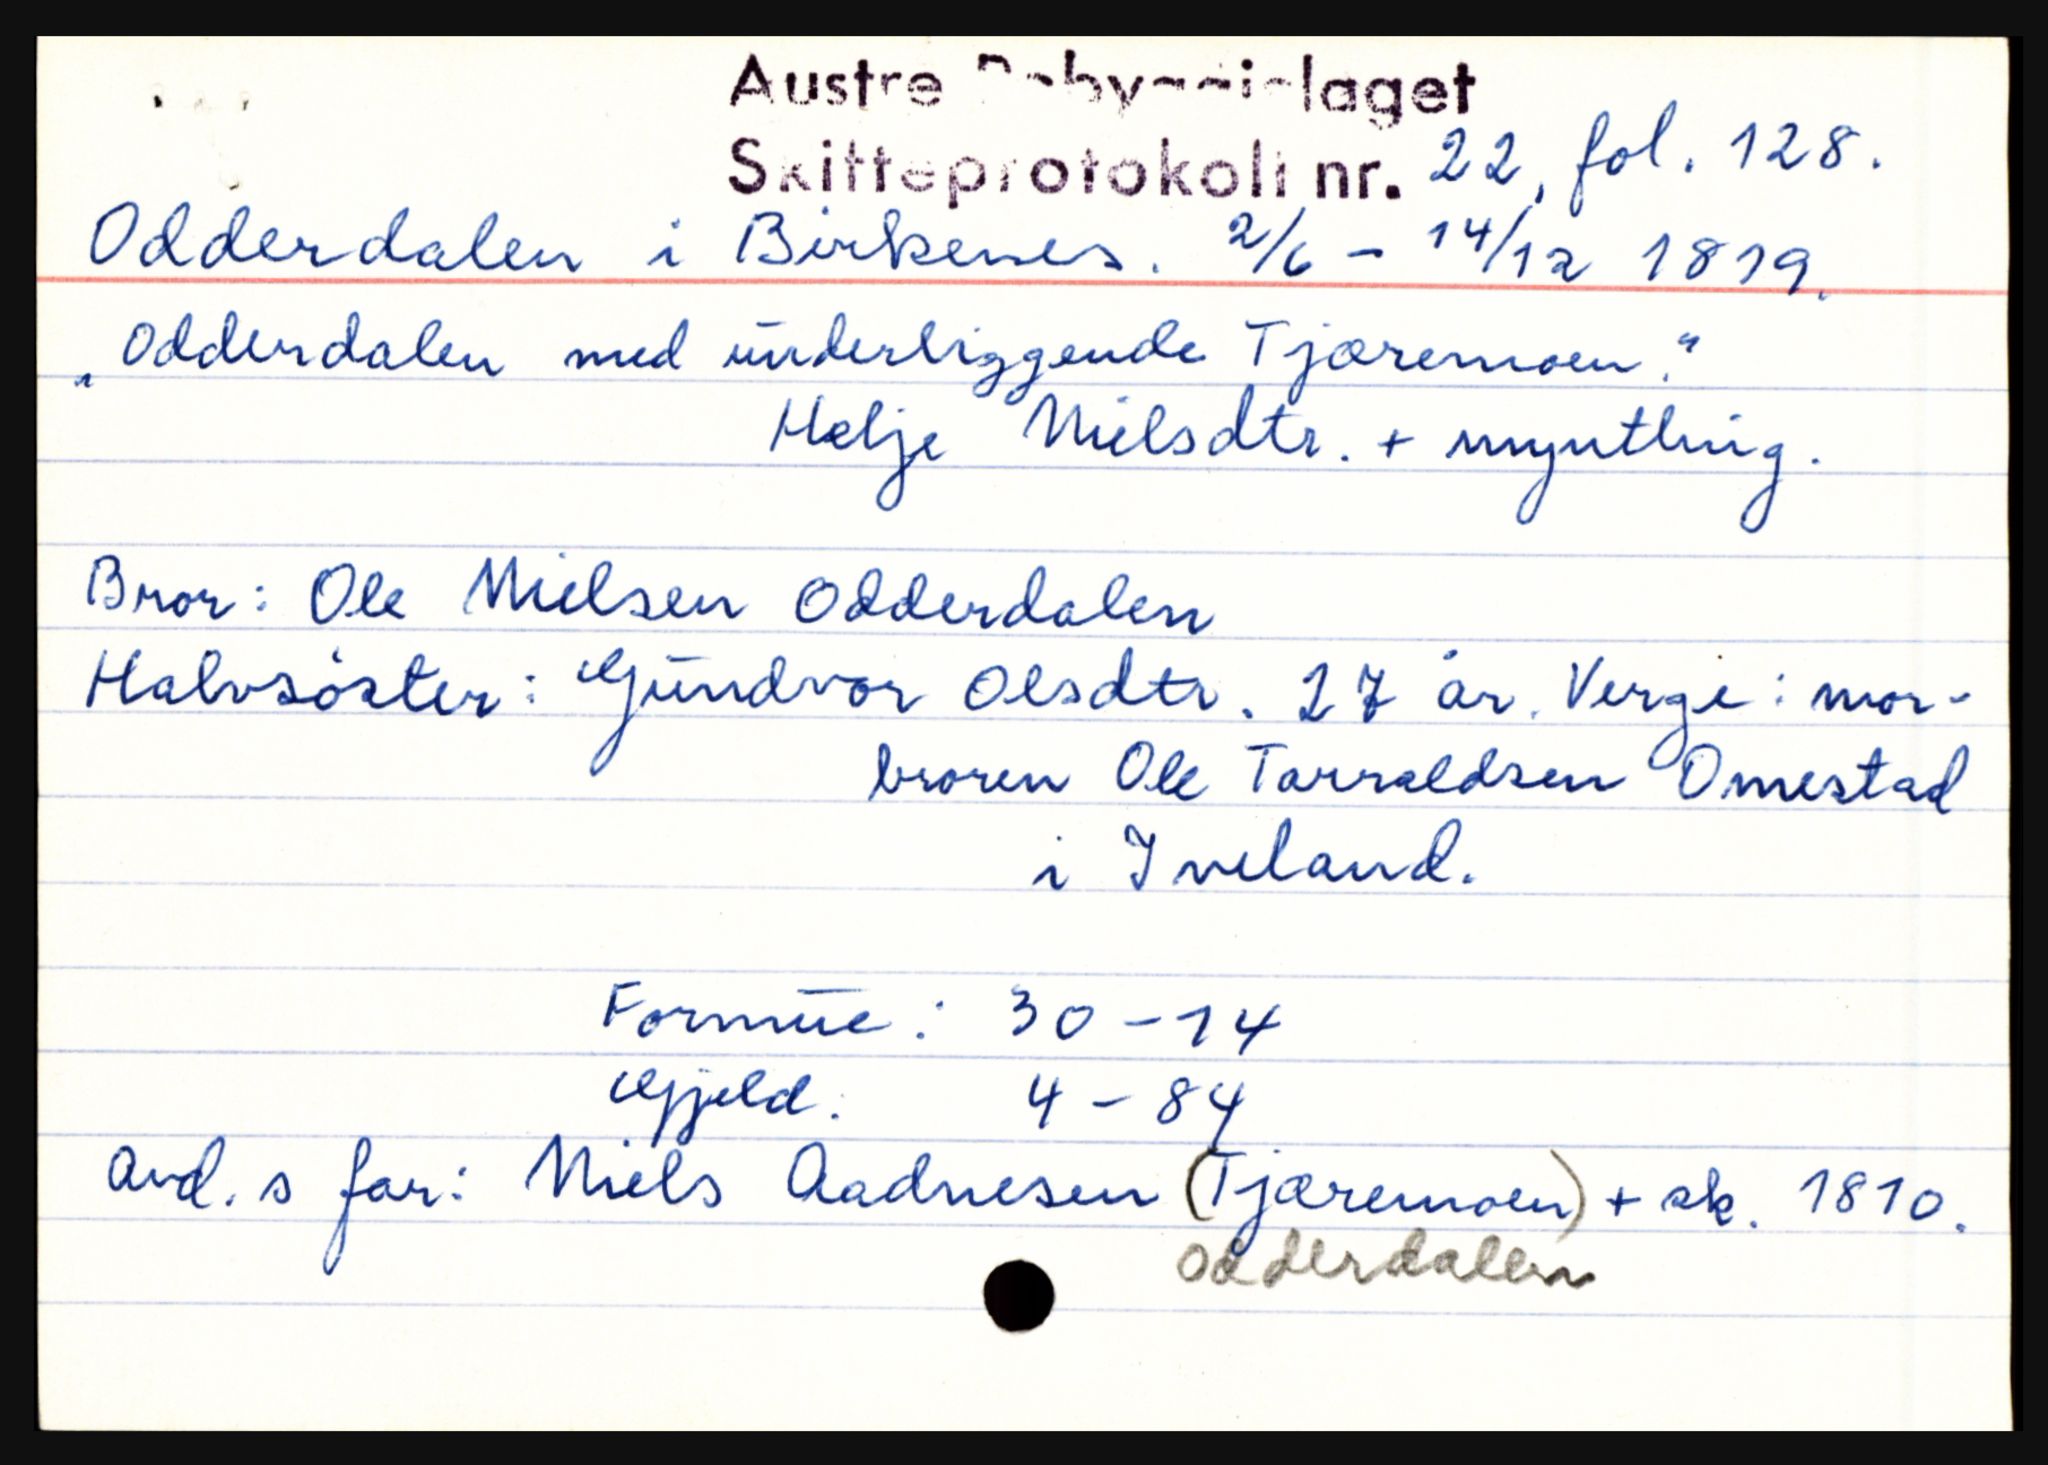 Austre Robyggjelaget
Skifteprotokoll nr. 22, fol. 128.
Odderdalen i Birkenes. 2/6 - 14/12 1819.
„Odderdalen med underliggende Tjæremoen."
Helje Nielsdtr. + myntling.
Bror: Ole Nielsen Odderdalen
Halvsöster: Gundvor Olsdtr. 27 år. Verge: mor-
broren Ole Tarraldsen Omestad
i Iveland.
Formue: 30 - 14
Gjeld: 4 - 84
Avd. s far: Niels Aadnesen (Tjæremoen) + sk. 1810.
Odderdalen